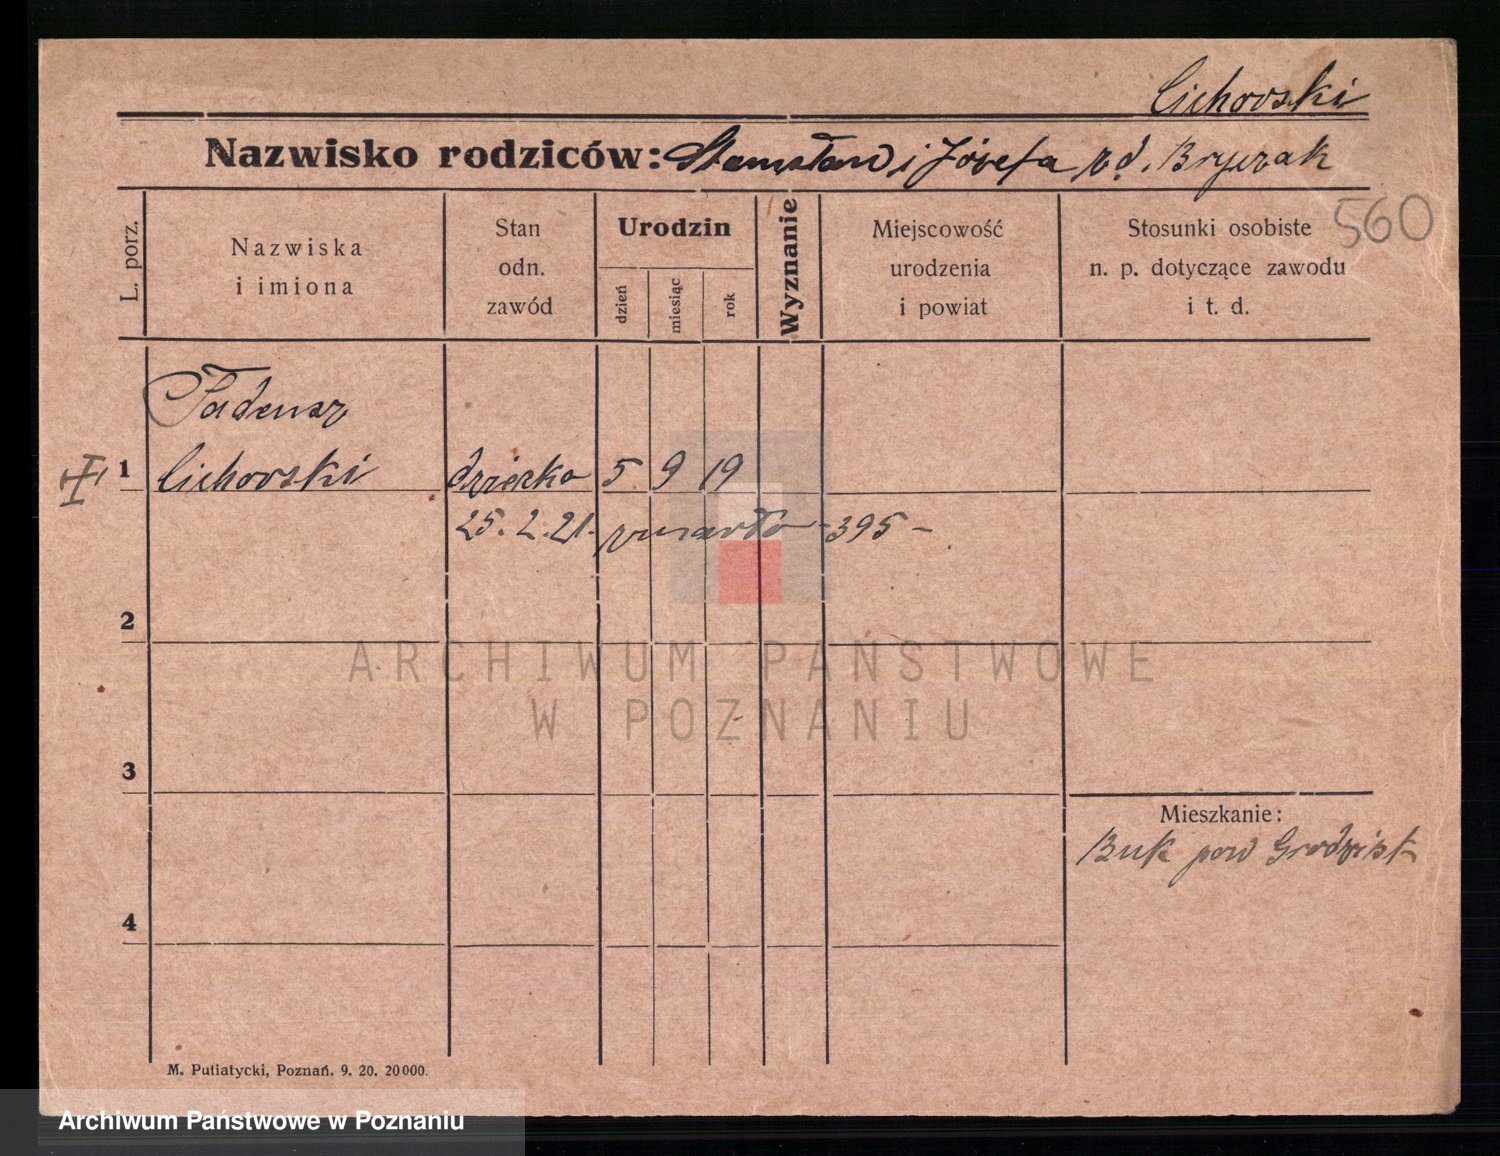 Cichovski
Nazwisko rodziców: Stanisław i Józefa z d. Bryczak
560
L. porz.
Nazwiska
i imiona
Stan
odn.
zawód
Urodzin
dzień
miesiąc
rok
Wyznanie
Miejscowość
urodzenia
i powiat
Stosunki osobiste
n. p. dotyczące zawodu
i t. d.
Tadeusz
1 Cichovski dziecko 5 9 19
25. 2. 21. zmarło - 395 -
2
ARCHIWUM PAŃSTWOWE
W POZNANIU
3
Mieszkanie:
Buk pow Grodzisk
4
M. Putiatycki, Poznań. 9. 20. 20000.
Archiwum Państwowe w Poznaniu